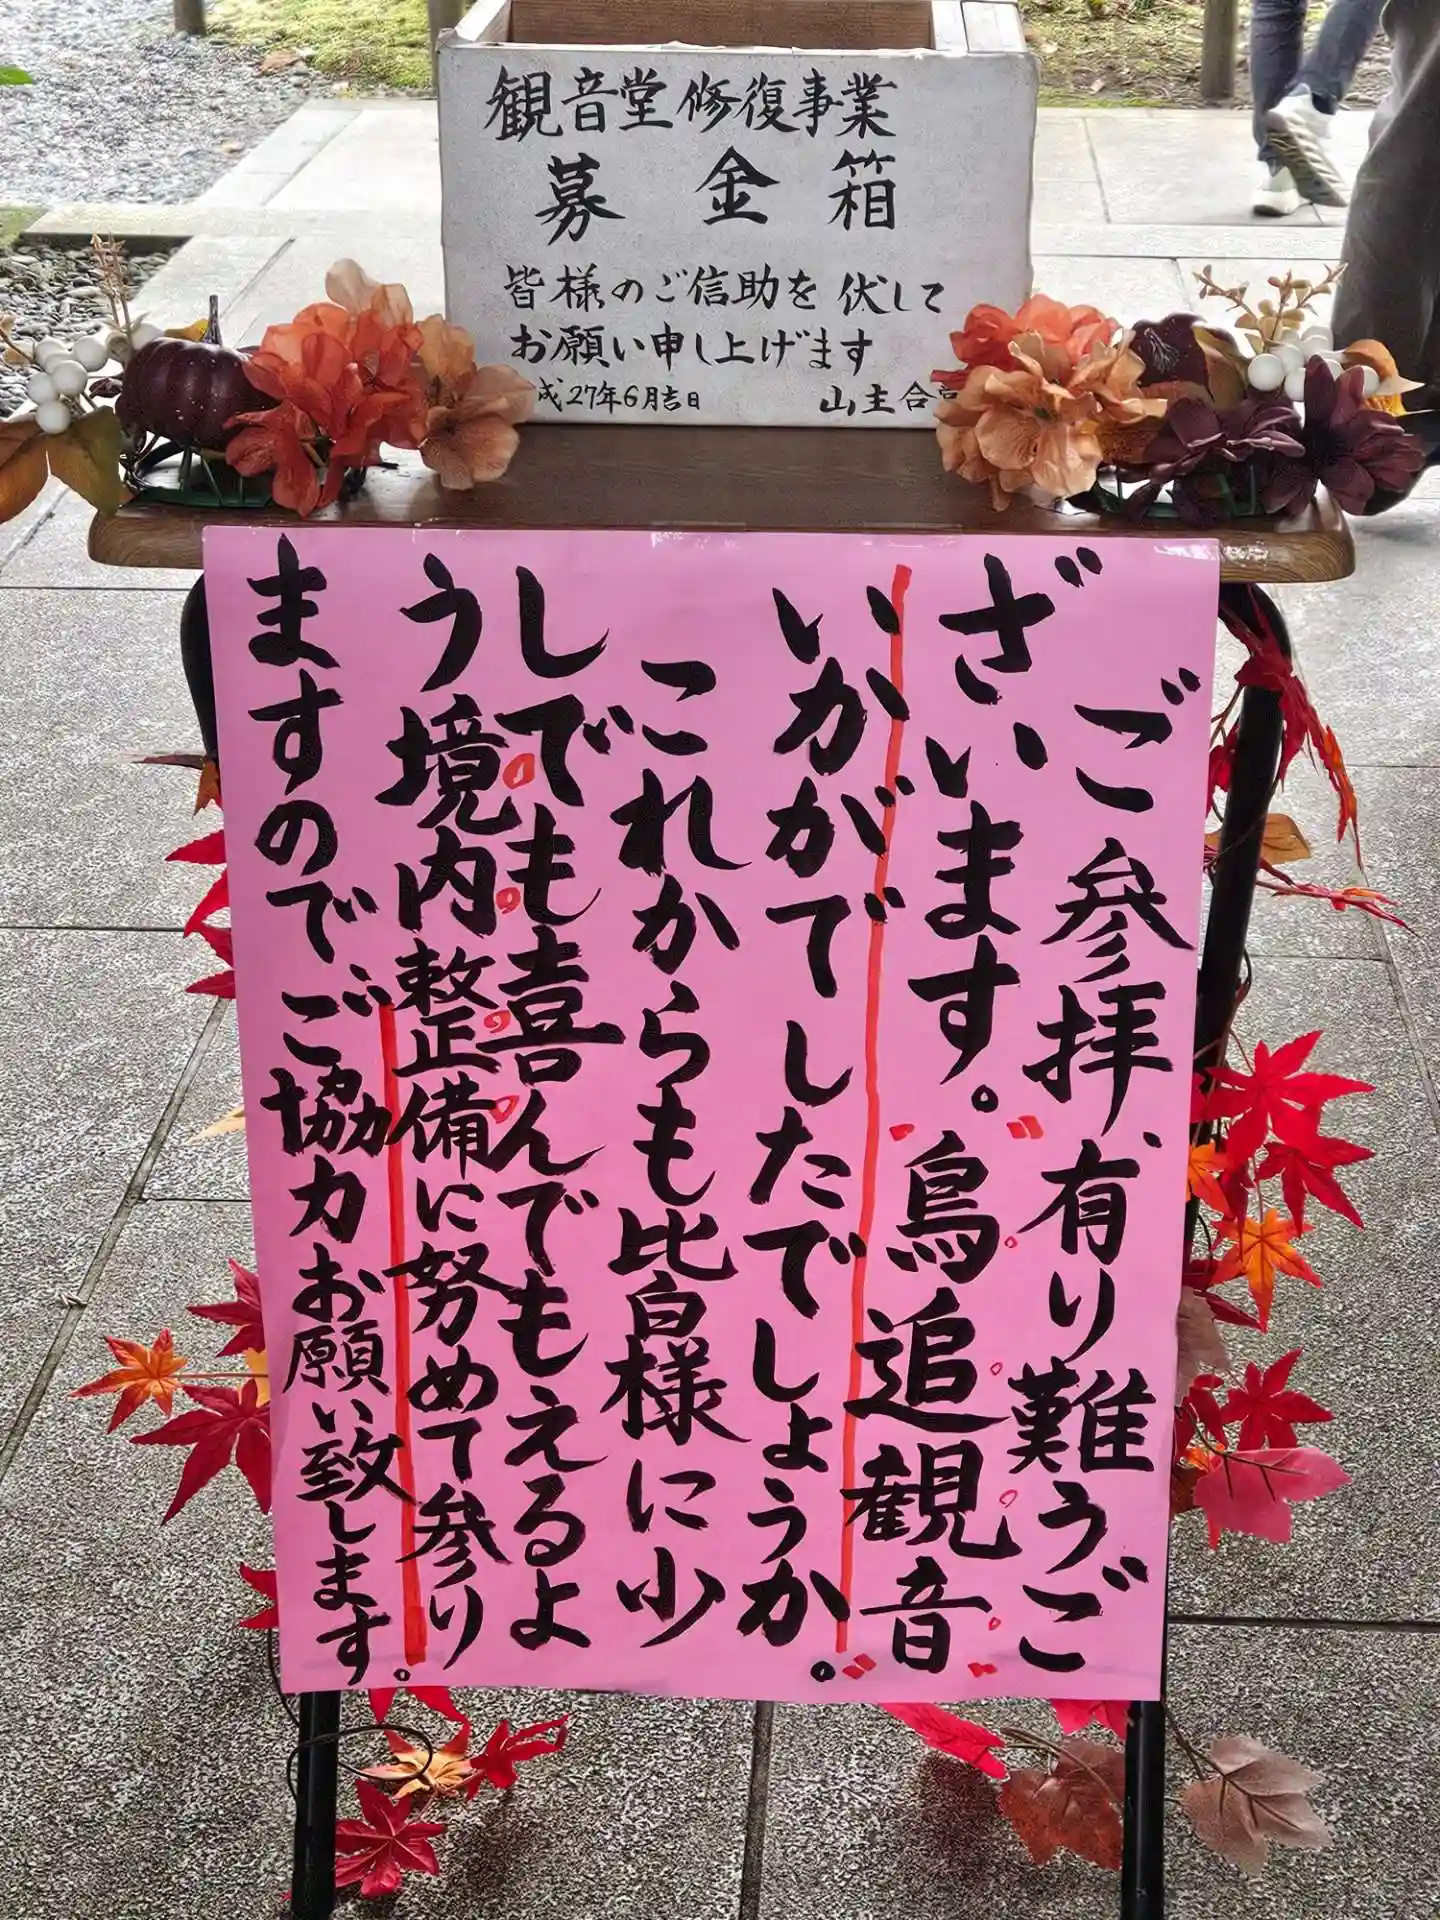 観音堂修復事業
募金箱
皆様のご信助を伏して
お願い申し上げます
成27年6月吉日 山主合
ご参拝、有り難うご
ざいます。鳥追観音
いかがでしたでしょうか。
これからも皆様に少
しでも喜んでもえるよ
う境内整備に努めて参り
ますので、ご協力お願い致します。